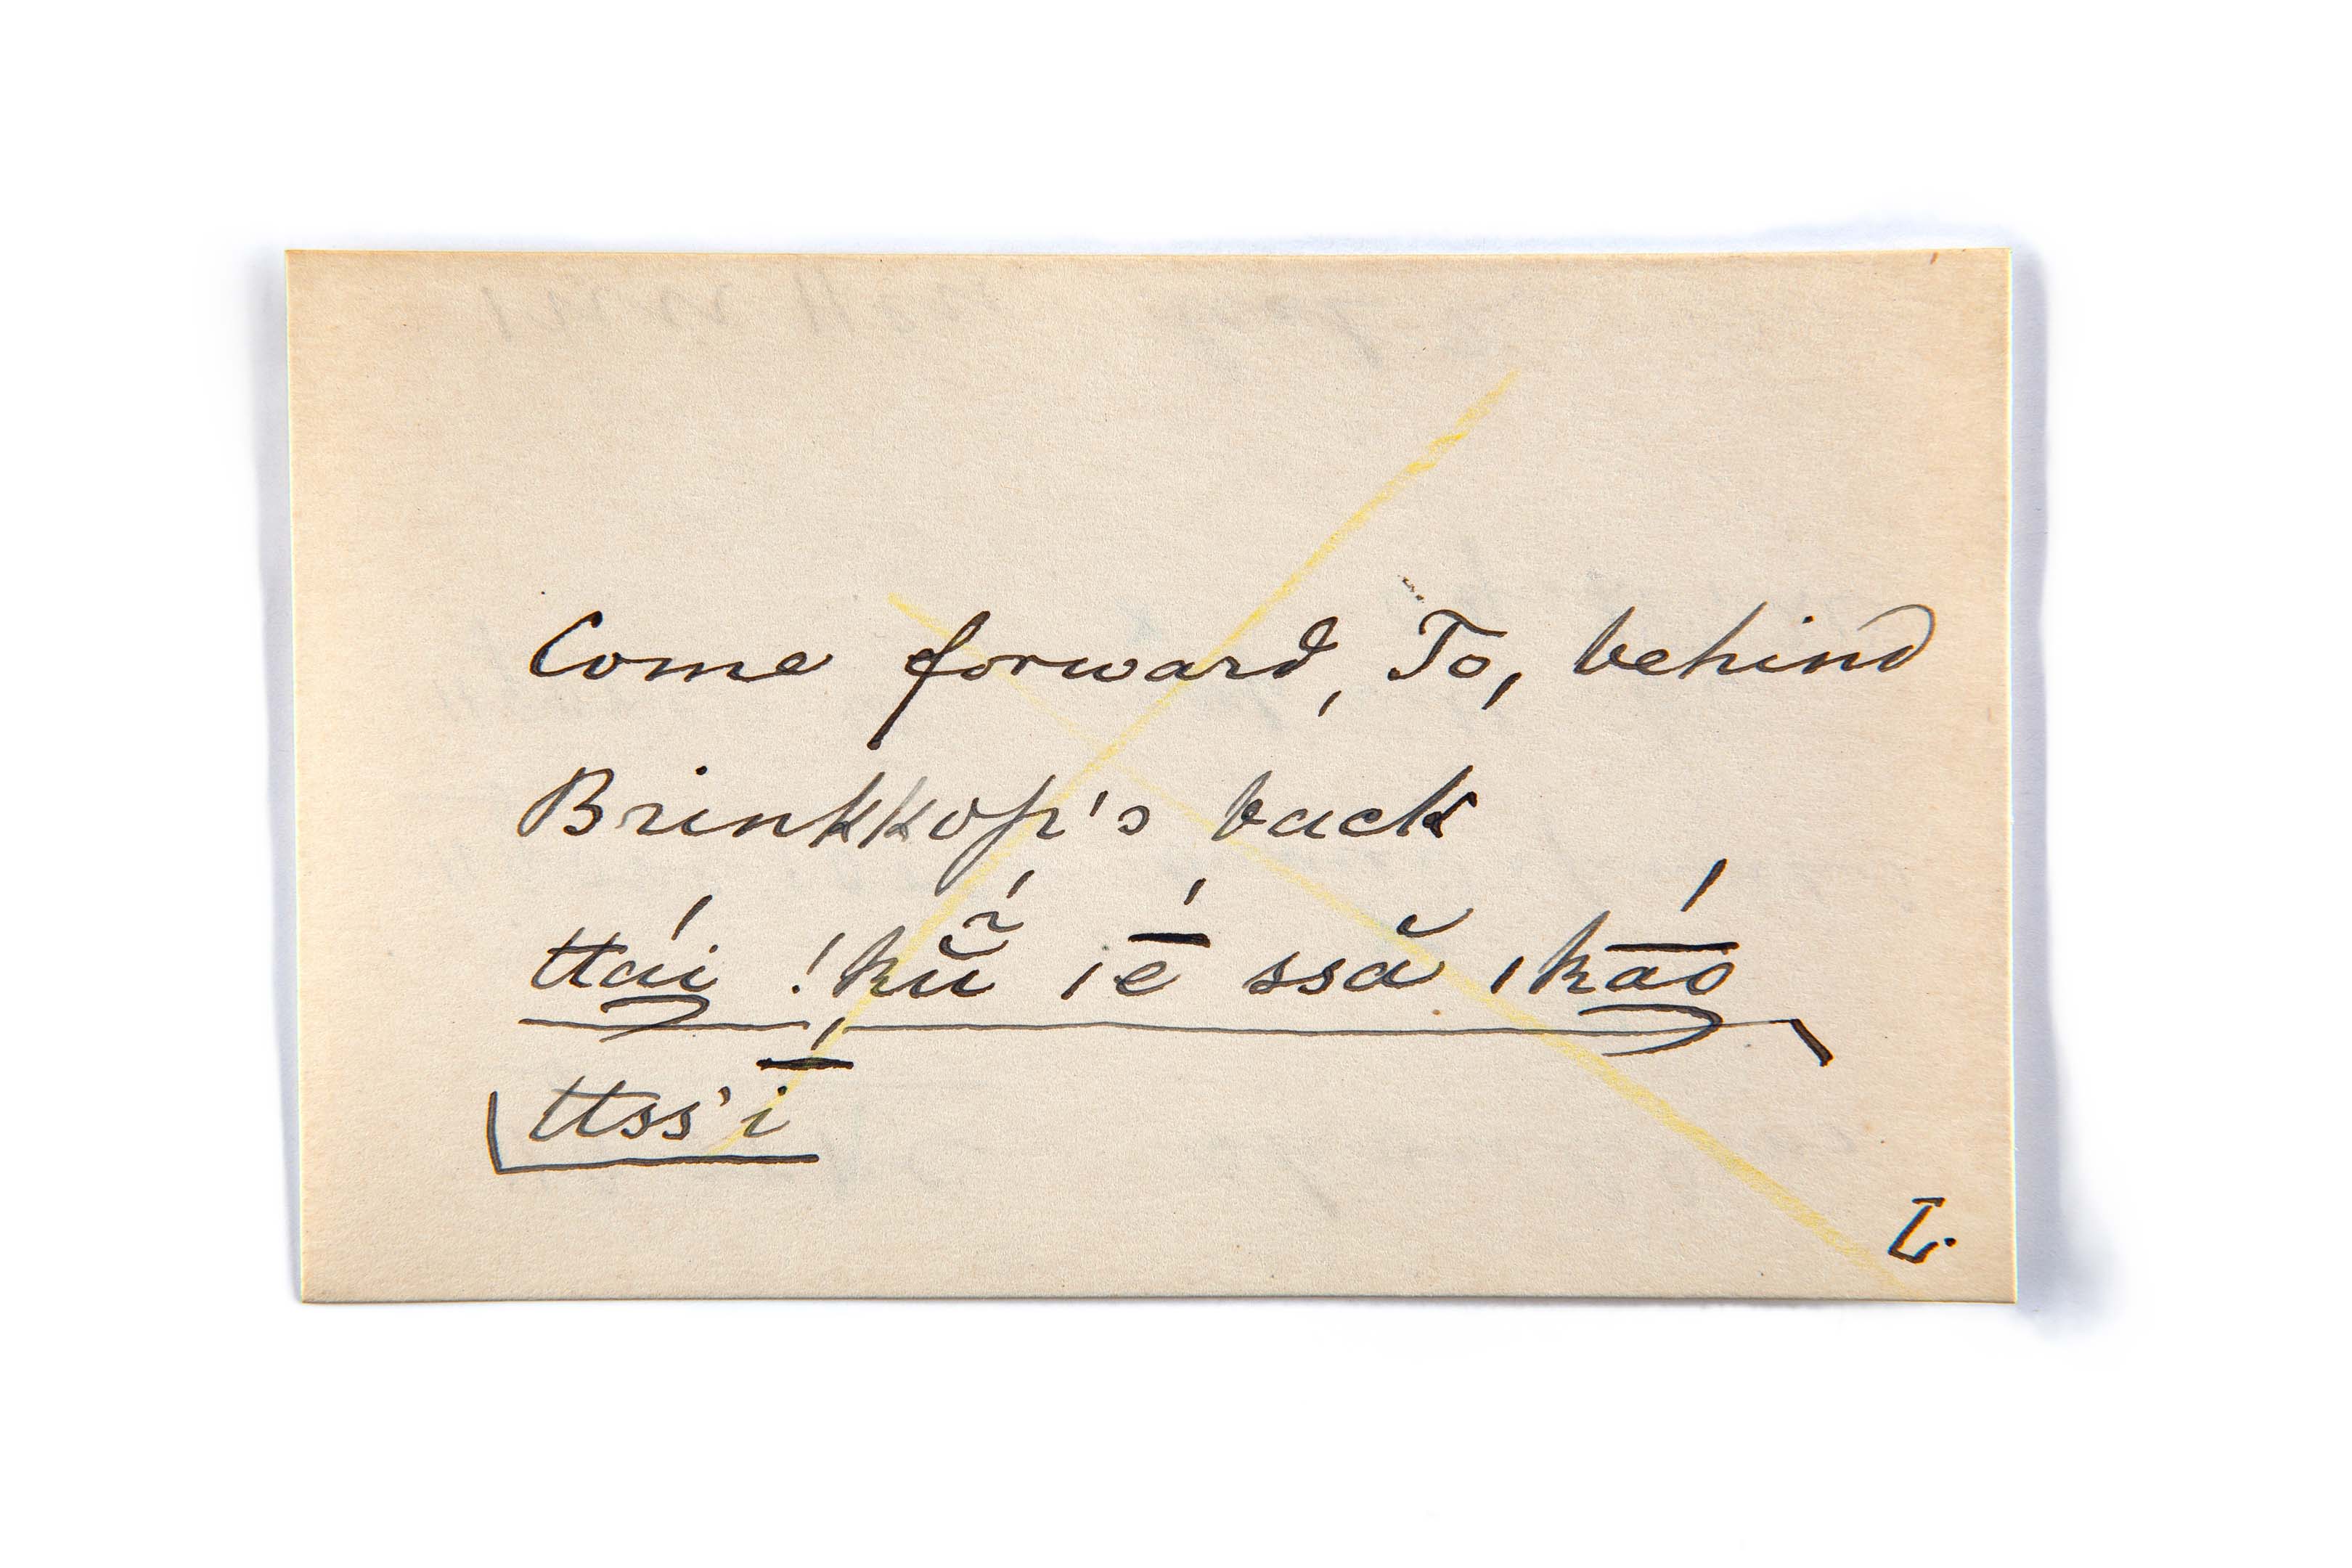 Come forward, To, behind
Brinkkop's back
ttái !kũ̆́ ıḗ ssă ıkā́o
ttss'ī́
L.